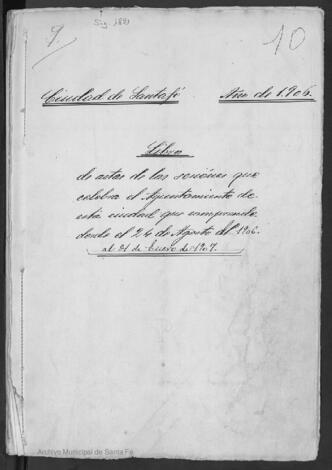 9.
Sig. 1881
10
Ciudad de Santafé Año de 1.906.
Libro
de actas de las sesiones que
celebra el Ayuntamiento de
esta ciudad que comprende
desde el 24 de Agosto del 1906.
al 21 de Enero de 1907.
Archivo Municipal de Santa Fe